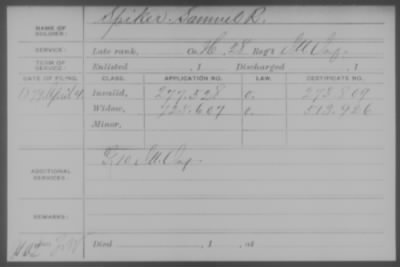 NAME OF SOLDIER: Spiker, Samuel R.
SERVICE: Late rank, Co. H, 28 Reg't Ill Inf.
TERM OF SERVICE: Enlisted , 1 Discharged , 1
DATE OF FILING. CLASS. APPLICATION NO. LAW. CERTIFICATE NO.
1879 April 4. Invalid, 277.528 273.809
Widow, 728.607 513.926
Minor,
ADDITIONAL SERVICES: Ill Inf.
REMARKS:
Died , 1 , at